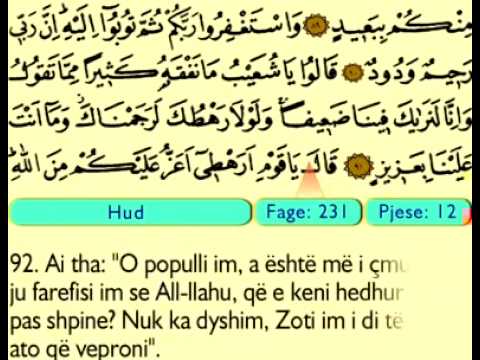 مِنْكُمْ بِبَعِيدٍ ۝٨٩ وَاسْتَغْفِرُوا رَبَّكُمْ ثُمَّ تُوبُوا إِلَيْهِ إِنَّ رَبِّي
رَحِيمٌ وَدُودٌ ۝٩٠ قَالُوا يَا شُعَيْبُ مَا نَفْقَهُ كَثِيرًا مِمَّا تَقُولُ
وَإِنَّا لَنَرٰيكَ فِينَا ضَعِيفًا وَلَوْلَا رَهْطُكَ لَرَجَمْنَاكَ وَمَا أَنْتَ
عَلَيْنَا بِعَزِيزٍ ۝٩١ قَالَ يَا قَوْمِ أَرَهْطِي أَعَزُّ عَلَيْكُمْ مِنَ اللّٰهِ
Hud Fage: 231 Pjese: 12
92. Ai tha: "O populli im, a është më i çmu
ju farefisi im se All-llahu, që e keni hedhur
pas shpine? Nuk ka dyshim, Zoti im i di të
ato që veproni".